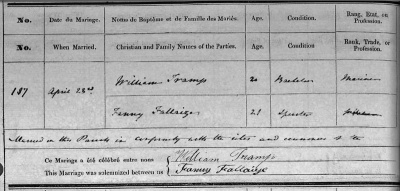 No. Date du Mariage. Noms de Baptême et de Famille des Mariés. Age. Condition Rang, Etat, ou Profession.
No. When Married. Christian and Family Names of the Parties. Age. Condition Rank, Trade, or Profession.
William Tramp 20 Bachelor Mariner
187 April 23rd
Fanny Fallaize 21 Spinster
Married in this Parish in conformity with the rites and ceremonies of the
Ce Mariage a été célébré entre nous William Tramp
This Marriage was solemnized between us Fanny Fallaize